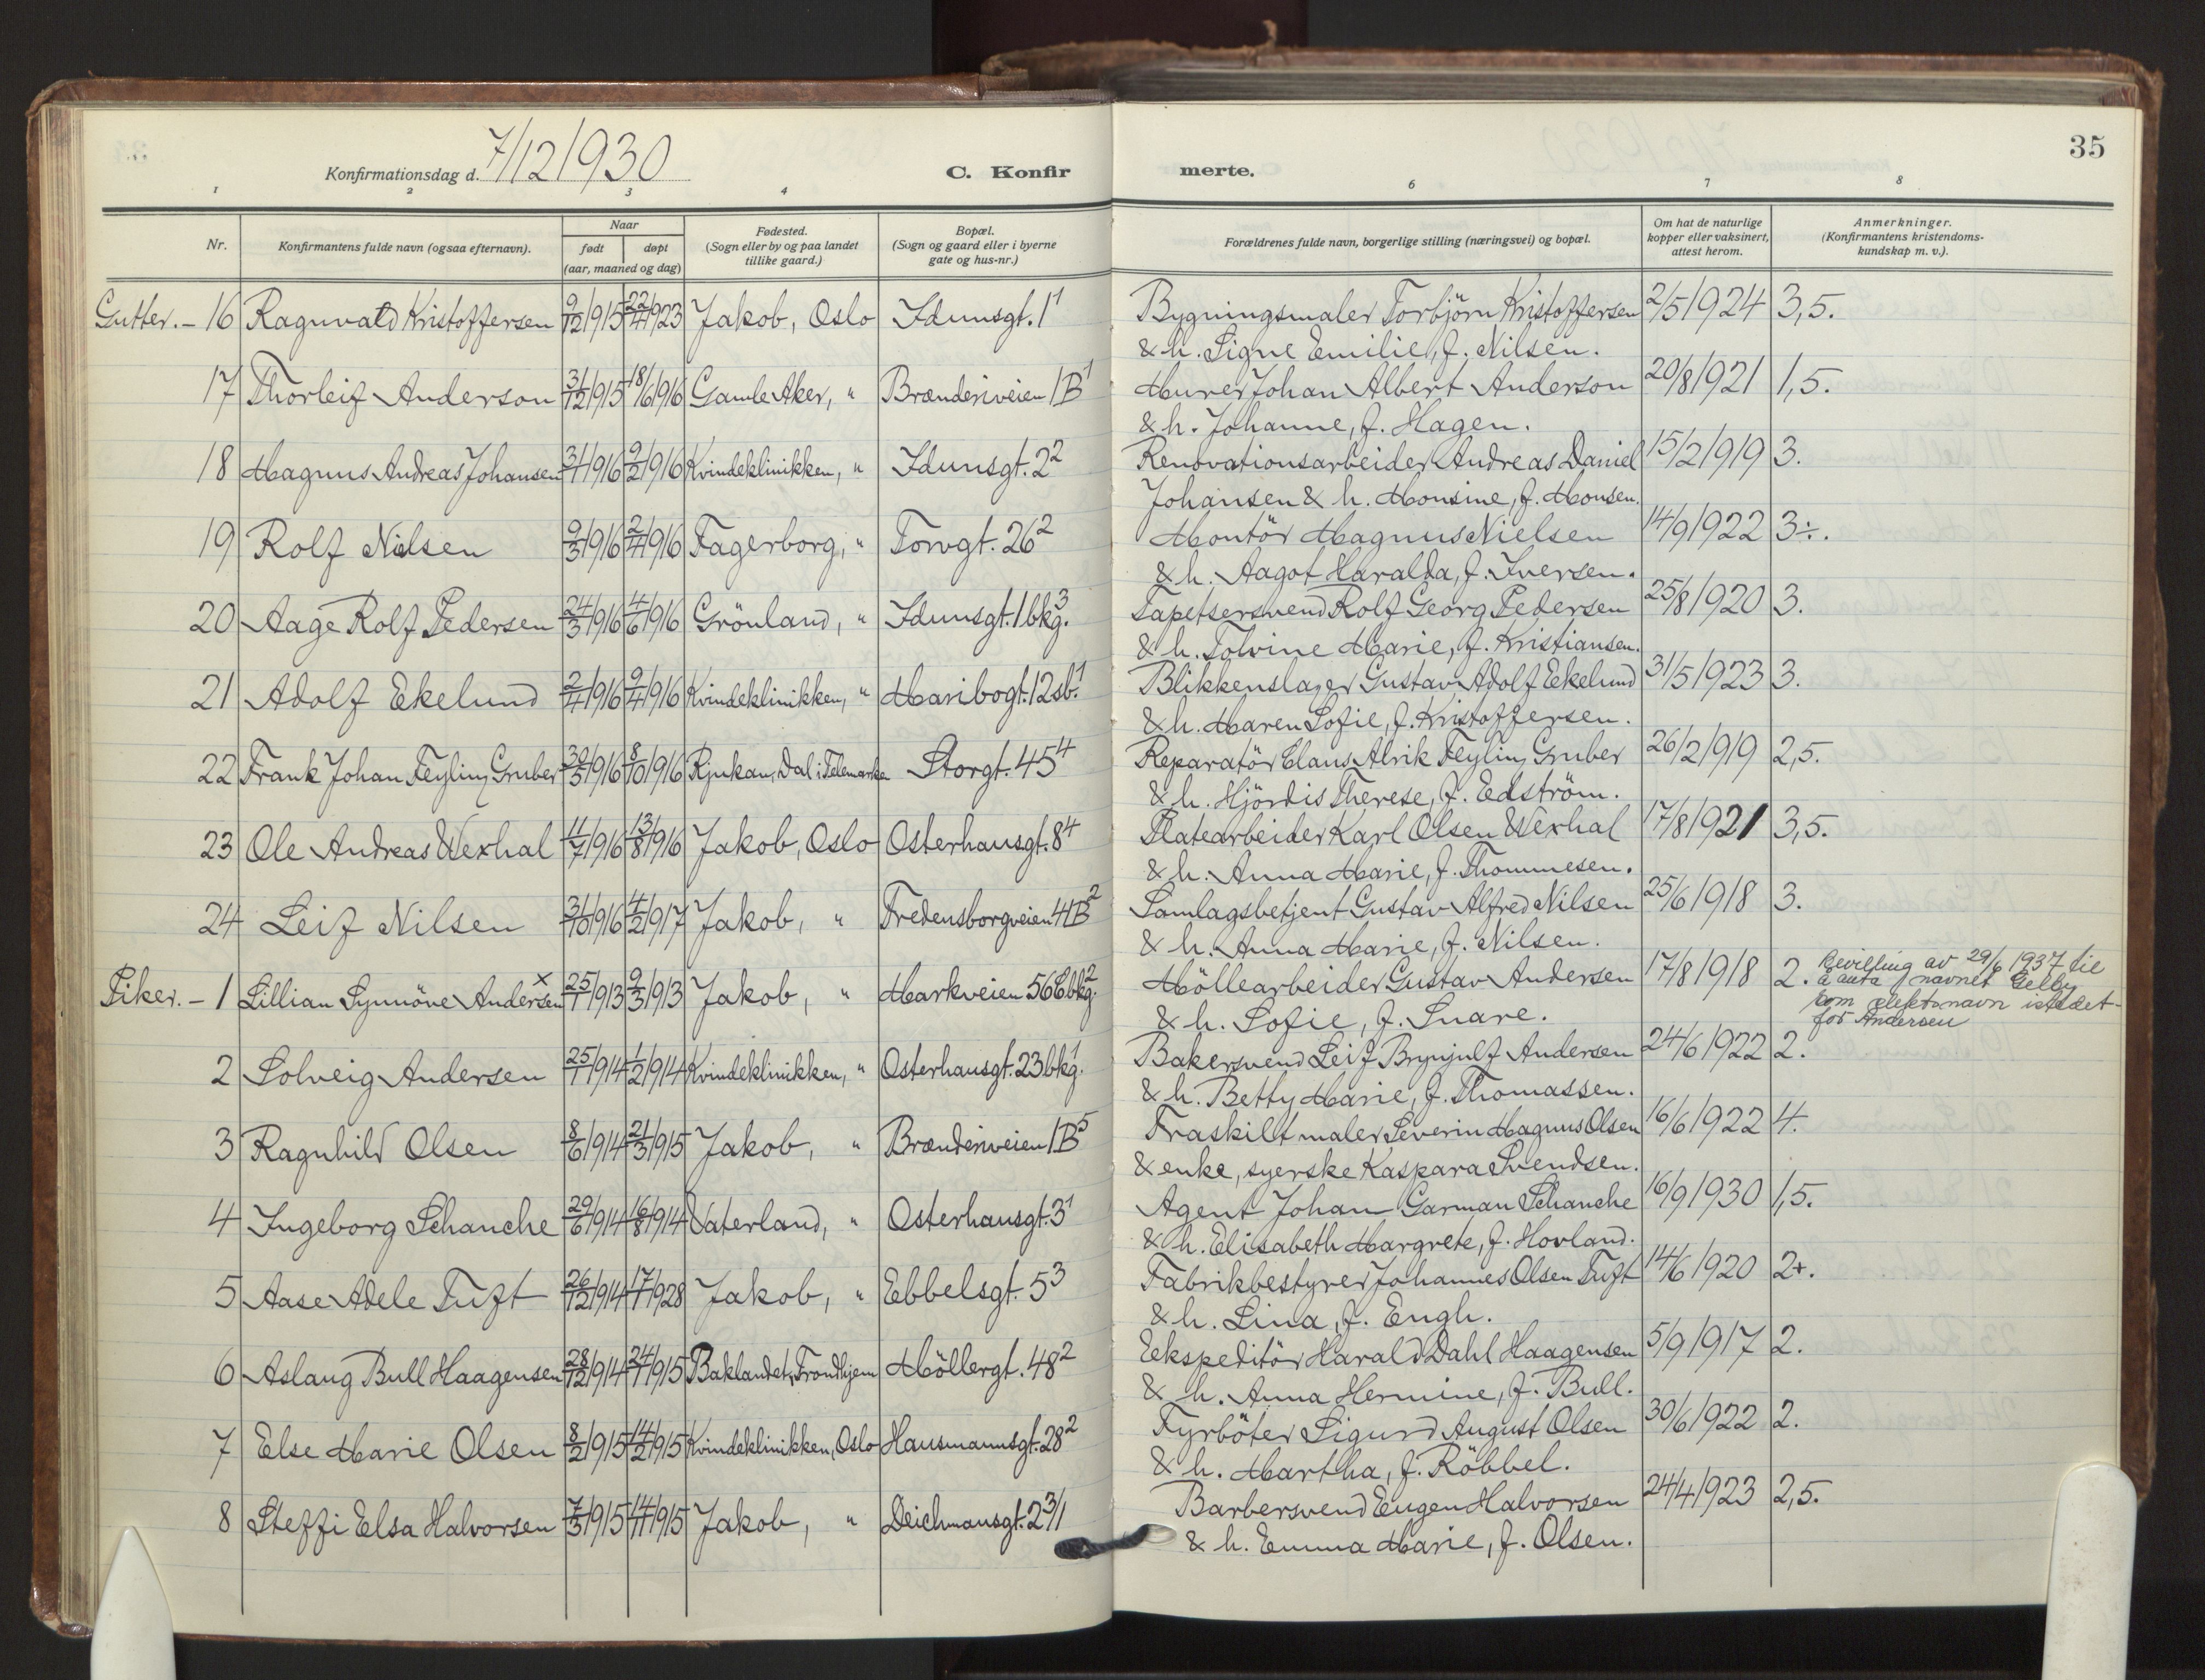 7/12 1930
Konfirmationsdag d.
C. Konfir
merte.
35
1 2 3 4 6 7 8
Nr.
Konfirmantens fulde navn (ogsaa efternavn).
Naar
født døpt
(aar, maaned og dag)
Fødested.
(Sogn eller by og paa landet
tillike gaard.)
Bopæl.
(Sogn og gaard eller i byerne
gate og hus-nr.)
Forældrenes fulde navn, borgerlige stilling (næringsvei) og bopæl.
Om hat de naturlige
kopper eller vaksinert,
attest herom.
Anmerkninger.
(Konfirmantens kristendoms-
kundskap m. v.).
Gutter. – 16 Ragnvald Kristoffersen 9/12 1915 22/4 1923 Jakob, Oslo Idunsgt. 1¹ Bygningsmaler Torbjörn Kristoffersen 2/5 1924 3,5.
& h. Signe Emilie, f. Nilsen.
17 Thorleif Anderson 31/12 1915 18/6 1916 Gamle Aker, " Brænderiveien 1B¹ Murer Johan Albert Anderson 20/8 1921 1,5.
& h. Johanne, f. Hagen.
18 Magnus Andreas Johansen 31/1 1916 9/2 1916 Kvindeklinikken, " Idunsgt. 2² Renovationsarbeider Andreas Daniel 15/2 1919 3.
Johansen & h. Monsine, f. Monsen.
19 Rolf Nielsen 9/3 1916 2/4 1916 Fagerborg, " Torvgt. 26² Montör Magnus Nielsen 14/9 1922 3÷.
& h. Aagot Haralda, f. Iversen.
20 Aage Rolf Pedersen 24/3 1916 4/6 1916 Grönland, " Idunsgt. 1 bkg.³ Tapetsersvend Rolf Georg Pedersen 25/8 1920 3.
& h. Tolvine Marie, f. Kristiansen.
21 Adolf Ekelund 2/4 1916 9/4 1916 Kvindeklinikken, " Maribogt. 12 sb.¹ Blikkenslager Gustav Adolf Eekelund 31/5 1923 3.
& h. Maren Sofie, f. Kristoffersen.
22 Frank Johan Feyling Gruber 30/5 1916 8/10 1916 Rjukan, Dal i Telemarken Storgt. 45⁴ Reparatör Claus Alrik Feyling Gruber 26/2 1919 2,5.
& h. Hjördis Therese, f. Edström.
23 Ole Andreas Wexhal 11/7 1916 13/8 1916 Jakob, Oslo Osterhausgt. 8⁴ Platearbeider Karl Olsen Wexhal 17/8 1921 3,5.
& h. Anna Marie, f. Thommesen.
24 Leif Nilsen 31/10 1916 4/2 1917 Jakob, " Fredensborgveien 41B² Samlagsbetjent Gustav Alfred Nilsen 25/6 1918 3.
& h. Anna Marie, f. Nilsen.
Piker. – 1 Lillian Synnöve Andersen × 25/1 1913 9/3 1913 Jakob, " Markveien 56C bkg.² Möllearbeider Gustav Andersen 17/8 1918 2. Bevilling av 29/6 1937 til
å anta navnet Gelby
som slektsnavn istedet-
for Andersen
& h. Sofie, f. Snare.
2 Solveig Andersen 25/1 1914 1/2 1914 Kvindeklinikken, " Osterhausgt. 23 bkg.¹ Bakersvend Leif Brynjulf Andersen 24/6 1922 2.
& h. Betty Marie, f. Thomassen.
3 Ragnhild Olsen 8/6 1914 21/3 1915 Jakob, " Brænderiveien 1B⁵ Fraskilt maler Severin Magnus Olsen 16/6 1922 4.
& enke, syerske Kaspara Svendsen.
4 Ingeborg Schanche 29/6 1914 16/8 1914 Vaterland, " Osterhausgt. 3¹ Agent Johan Garman Schanche 16/9 1930 1,5.
& h. Elisabeth Margrete, f. Hovland.
5 Aase Adele Tuft 26/12 1914 17/1 1928 Jakob, " Ebbelsgt. 5³ Fabrikbestyrer Johannes Olsen Tuft 14/6 1920 2+.
& h. Lina, f. Engh.
6 Aslaug Bull Haagensen 28/12 1914 24/1 1915 Baklandet, Trondhjem Möllergt. 48² Eekspeditör Harald Dahl Haagensen 5/9 1917 2.
& h. Anna Hermine, f. Bull.
7 Else Marie Olsen 8/2 1915 14/2 1915 Kvindeklinikken, Oslo Hausmannsgt. 28² Fyrböter Sigurd August Olsen 30/6 1922 2.
& h. Martha, f. Röbbel.
8 Steffi Elsa Halvorsen 7/3 1915 14/11 1915 Jakob, " Deichmansgt. 2³/1 Barbersvend Eugen Halvorsen 24/4 1923 2,5.
& h. Emma Marie, f. Olsen.